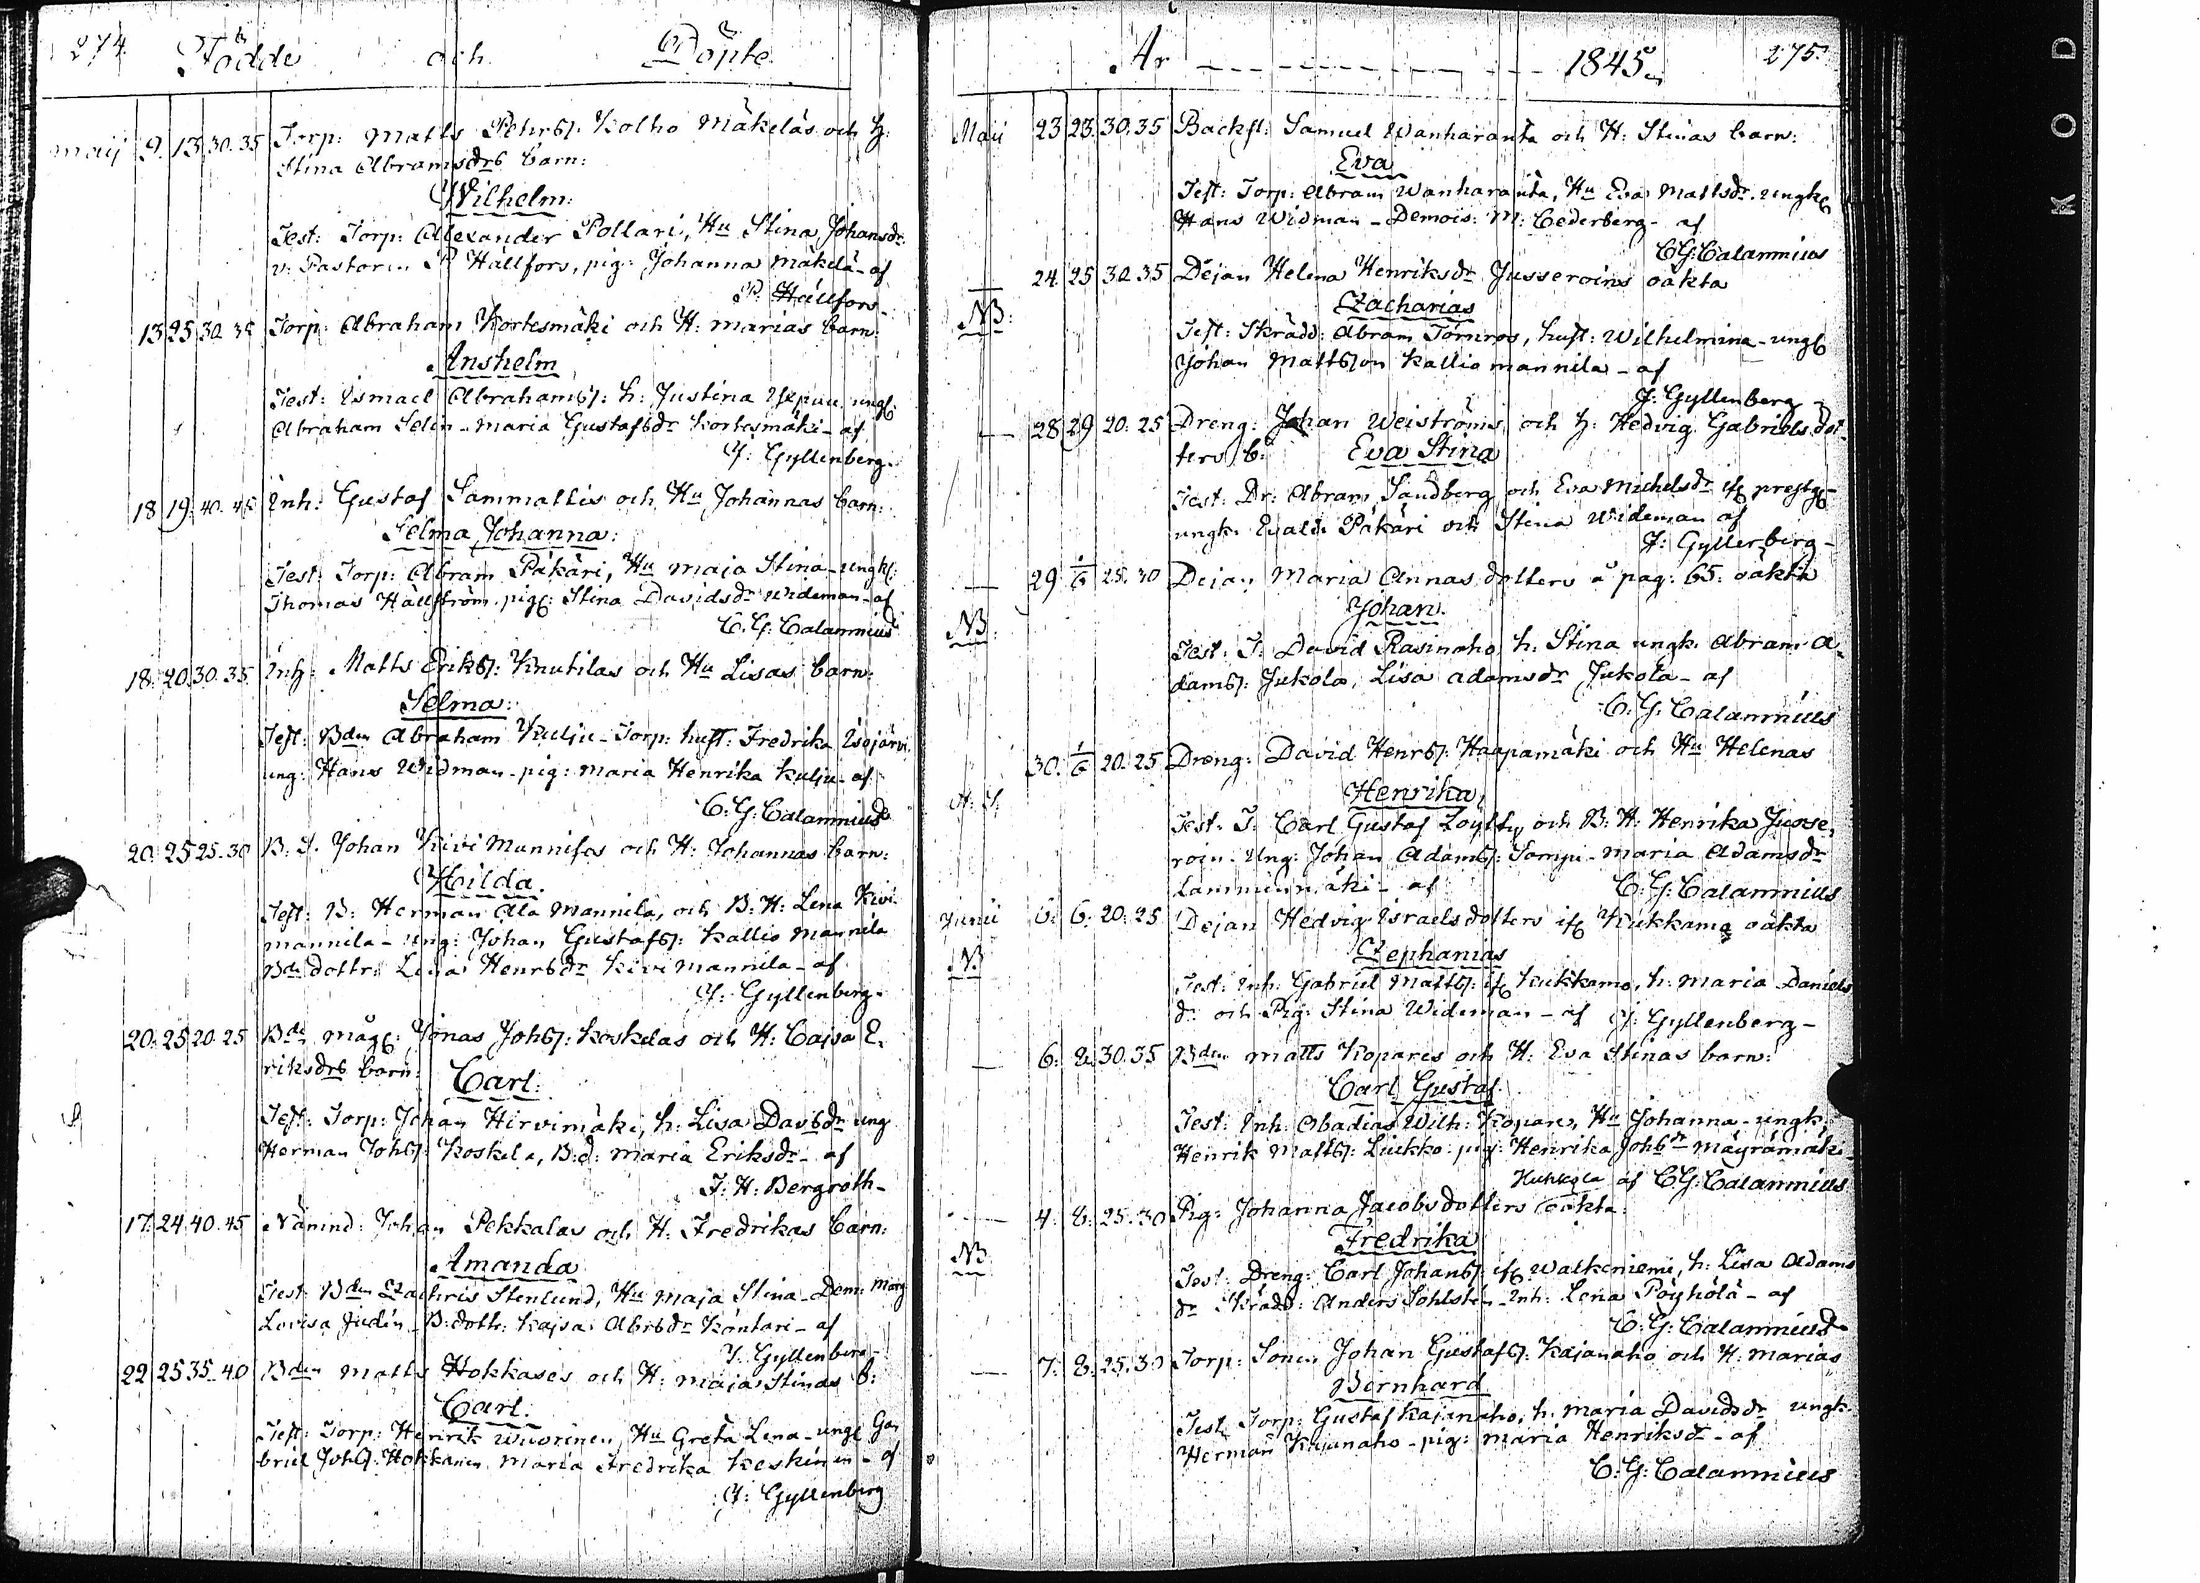 274. Födde och Döpte
maij 9. 13 30. 35 Torp: Matts Pehrss: Kolho Mäkeläs och H:
Stina Abramsdrs barn:
Wilhelm:
Test: Torp: Alexander Pollari, Hu Stina Johansdr.
v: Pastorin P Hällfors, pig: Johanna Mäkelä - af
P. Hällfors
13 25 30. 35 Torp: Abraham Kortesmäki och H: Marias barn:
Anshelm
Test: Ismael Abrahamss: h: Justina ungk:
Abraham Selin - Maria Gustafsdr Kortesmäki - af
J: Gyllenberg.
18 19. 40. 45 Inh: Gustaf Sammallis och Hu Johannas barn:
Selma Johanna:
Test: Torp: Abram Päkäri, Hu Maja Stina - ungk:
Thomas Hällström. pig: Stina Davidsdr Wideman - af
C. G: Calamnius
18. 20. 30. 35 Inh: Matts Erikss: Knutilas och Hu Lisas barn:
Selma:
Test: Bdn Abraham Kulju - Torp: hust: Fredrika Isojärvi,
ung: Hans Widman - pig: Maria Henrika Kulju - af
C. G: Calamnius
20. 25 25. 30 B: S. Johan Kivi Mannilas och H: Johannas barn:
Hilda.
Test: B: Herman Ala Mannila, och B: H: Lena Kivi
mannila - ung: Johan Gustafss: Kallio Mannila
Bde dottr: Lisa Henrsdr Kivi Mannila - af
J: Gyllenberg.
20. 25 20. 25 Bde måg: Jonas Johss: Koskelas och H: Cajsa E.
riksdrs barn: Carl:
Test: Torp: Johan Hirvimäki, h: Lisa Davsdr ung
Herman Johss: Koskela, B:d: Maria Eriksdr - af
J: H: Bergroth -
17. 24 40. 45 Nämnd: Johan Pekkalas och H: Fredrikas barn:
Amanda
Test: Bdn Zachris Stenlund, Hu Maja Stina - Dem: Marg
Lovisa Judin - B: dottr: Kajsa Abrsdr Käntari - af
J: Gyllenberg -
22 25 35. 40 Bdn Matts Hokkases och H: Maja Stinas b:
Carl.
Test: Torp: Henrik Wuorinen, Hu Greta Lena - ungk Ga,
briel Johss: Hokkanen Maria Fredrika Keskinen - af
J: Gyllenberg
År 1845. 275.
Maii 23 23. 30. 35 Backst: Samuel Wanharanta och H: Stinas barn:
Eva
Test: Torp: Abram Wanharanta, Hu Eva Mattsdr. ungk
Hans Widman - Demois: M: Cederberg - af
C G: Calamnius
24. 25 30. 35 Dejan Helena Henriksdr Jusseroins oäkta
NB: Zacharias
Test: Skrädd: Abram Törnros, hust: Wilhelmina - ungk
Johan Mattsson Kalliomannila - af
J: Gyllenberg -
28 29 20. 25 Dreng: Johan Weiströms och H: Hedvig Gabrielsdot-
ters b: Eva Stina
Test: Dr: Abram Sandberg och Eva Michelsdr ifr prestg -
ungk. Evald Päkäri och Stina Wideman af
J: Gyllenberg -
29. 1/6 25. 30 Dejan Maria Annas dotters å pag: 65: oäkta
NB. Johan.
Test: T: David Rasinaho h. Stina ungk. Abram A,
damss: Jukola, Lisa Adamsdr Jukola - af
C. G: Calamnius
30. 1/6 20. 25 Dreng: David Henrss: Haapamäki och Hu Helenas
Henrika,
Test: T: Carl Gustaf och B: H: Henrika Jusse,
roin - Ung: Johan Adamss: Sompi - Maria Adamsdr
Lamminmäki - af C: G: Calamnius
Junii 5. 6. 20. 25 Dejan Hedvig Israelsdotters ifr Kukkamo oäkta
NB Zephanias
Test: Inh: Gabriel Mattss: ifr Kukkamo, h: Maria Daniels
dr och Pig: Stina Wideman - af J: Gyllenberg -
6. 8. 30. 35 Bdn Matts Kopares och H: Eva Stinas barn:
Carl Gustaf.
Test: Inh: Obadias Wilh: Kopare, Hu Johanna - ungk,
Henrik Mattss: Liukko: pig: Henrika Johsdr Mäyrämäki -
Huhkola af C G: Calamnius
4. 8. 25. 30 Pig: Johanna Jacobsdotters oäkta:
NB Fredrika
Test: Dreng: Carl Johanss: ifr Walkeniemi, h: Lisa Adams
dr Skrädd: Anders Sohlsten - Inh: Lena Pöyhölä - af
C: G: Calamnius
7. 8. 25. 30 Torp: Sonen Johan Gustafss: Kajanaho och H: Marias
Bernhard
Test Torp: Gustaf Kajanaho, h: Maria Davidsdr ungk.
Herman Kajanaho - pig: Maria Henriksdr - af
C: G: Calamnius
KOD